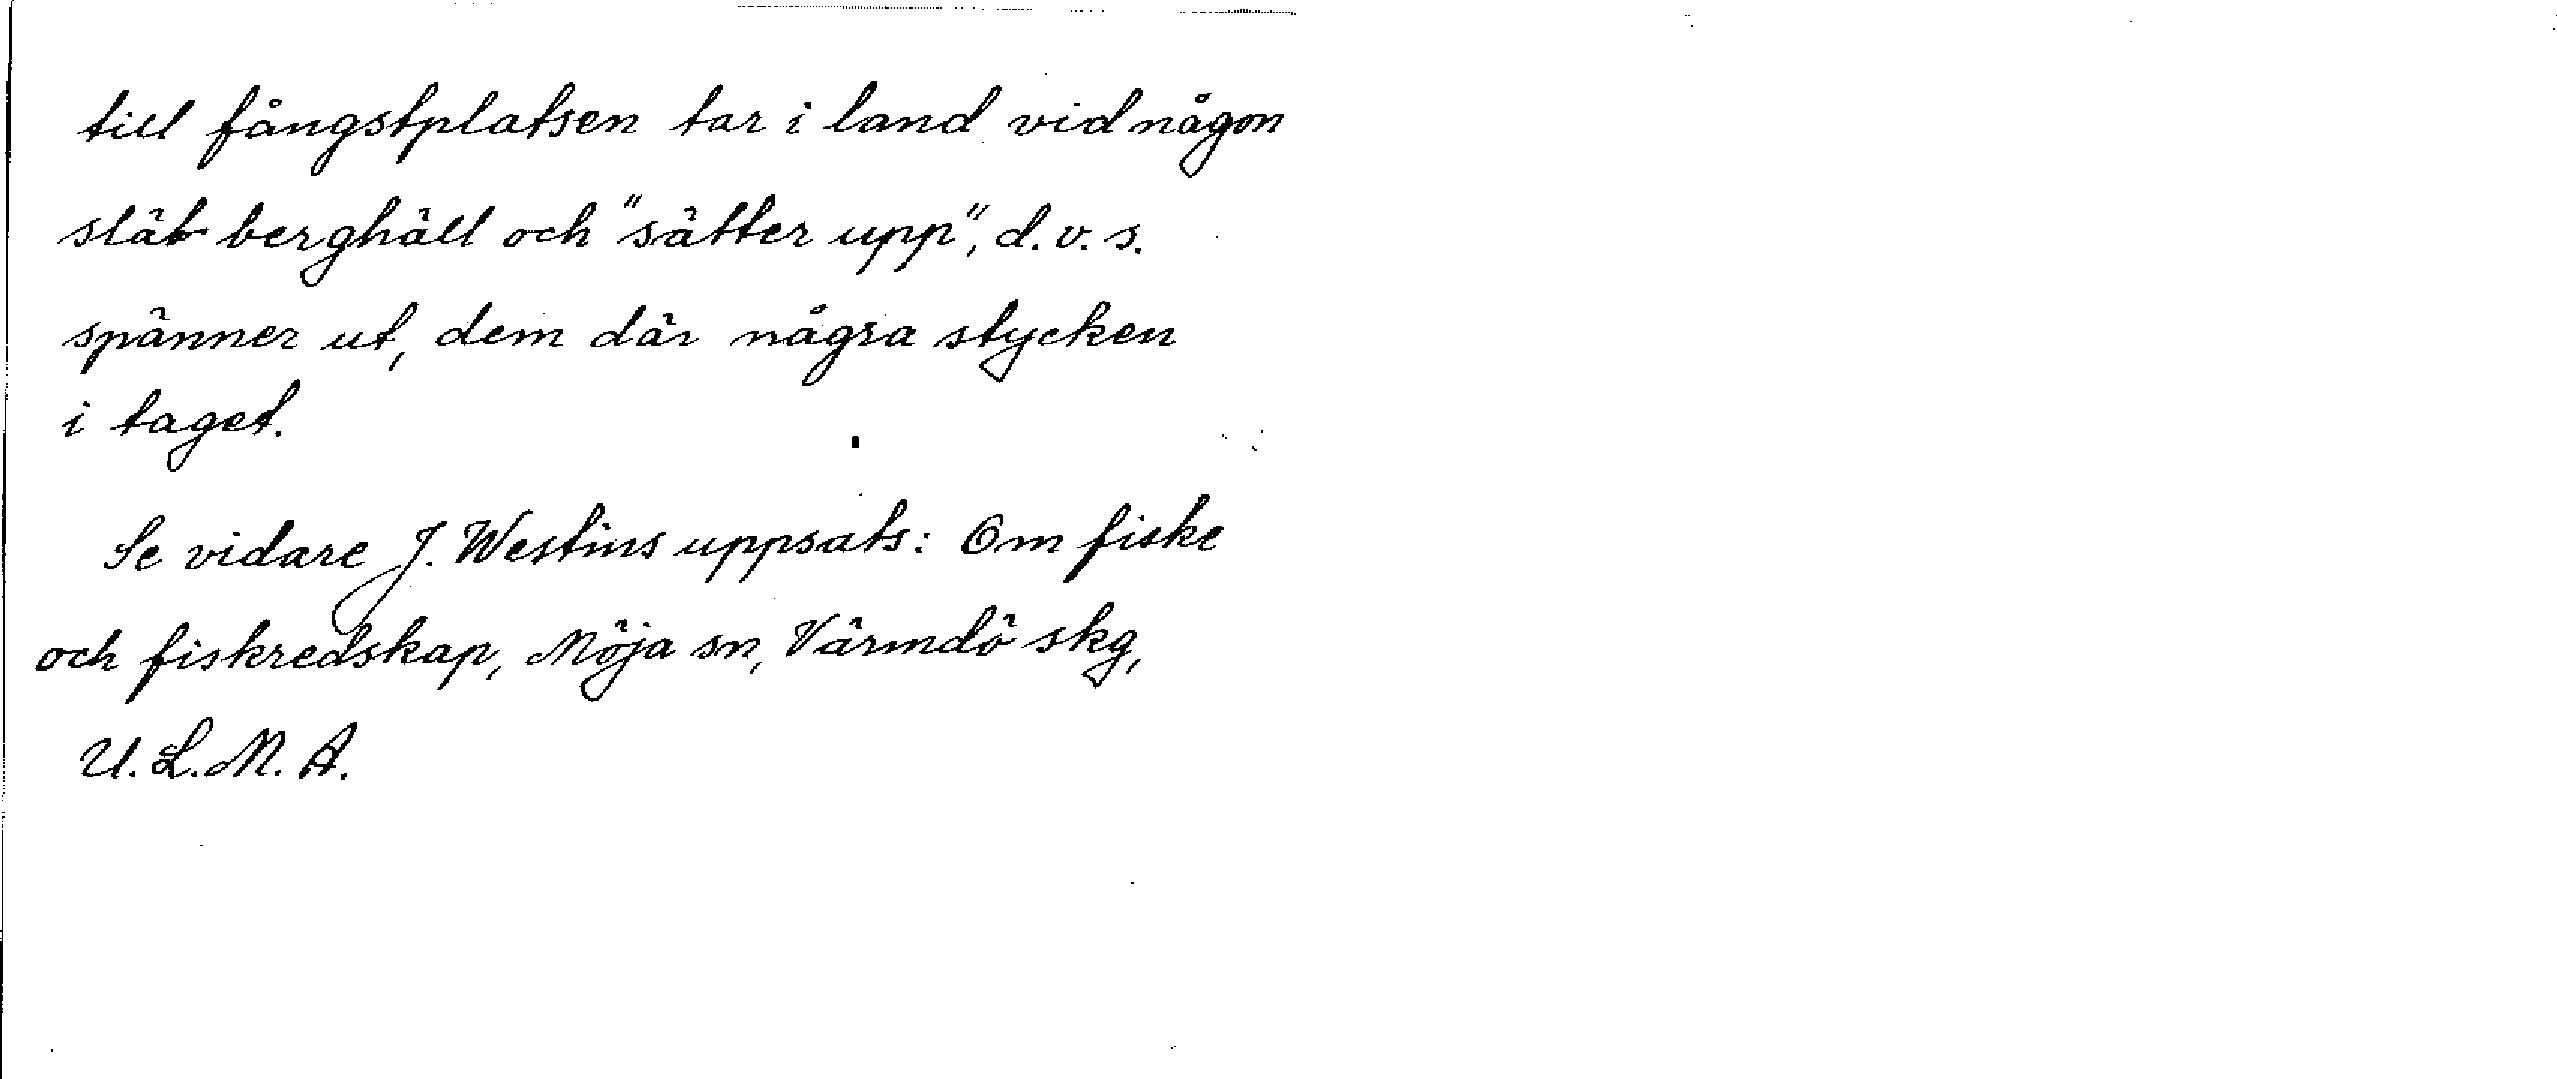 till fångstplatsen tar i land vid någon
slät berghäll och "sätter upp", d.v.s.
spänner ut, dem där några stycken
i taget.
Se vidare J. Westins uppsats: Om fiske
och fiskredskap, Möja sn, Värmdö skg,
U.L.M.A.